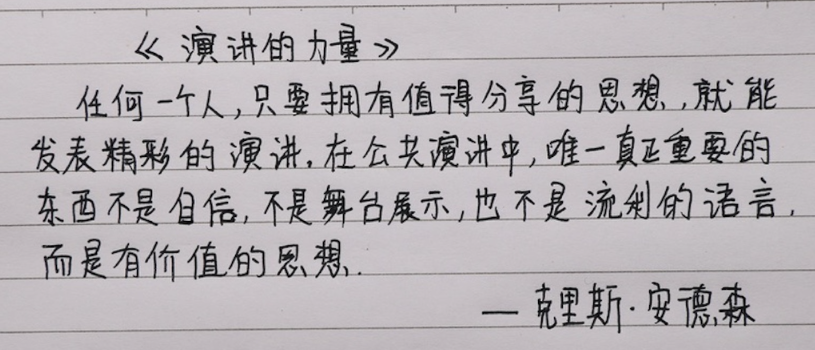 《演讲的力量》
任何一个人,只要拥有值得分享的思想,就能
发表精彩的演讲.在公共演讲中,唯一真正重要的
东西不是自信,不是舞台展示,也不是流利的语言,
而是有价值的思想.
—克里斯·安德森